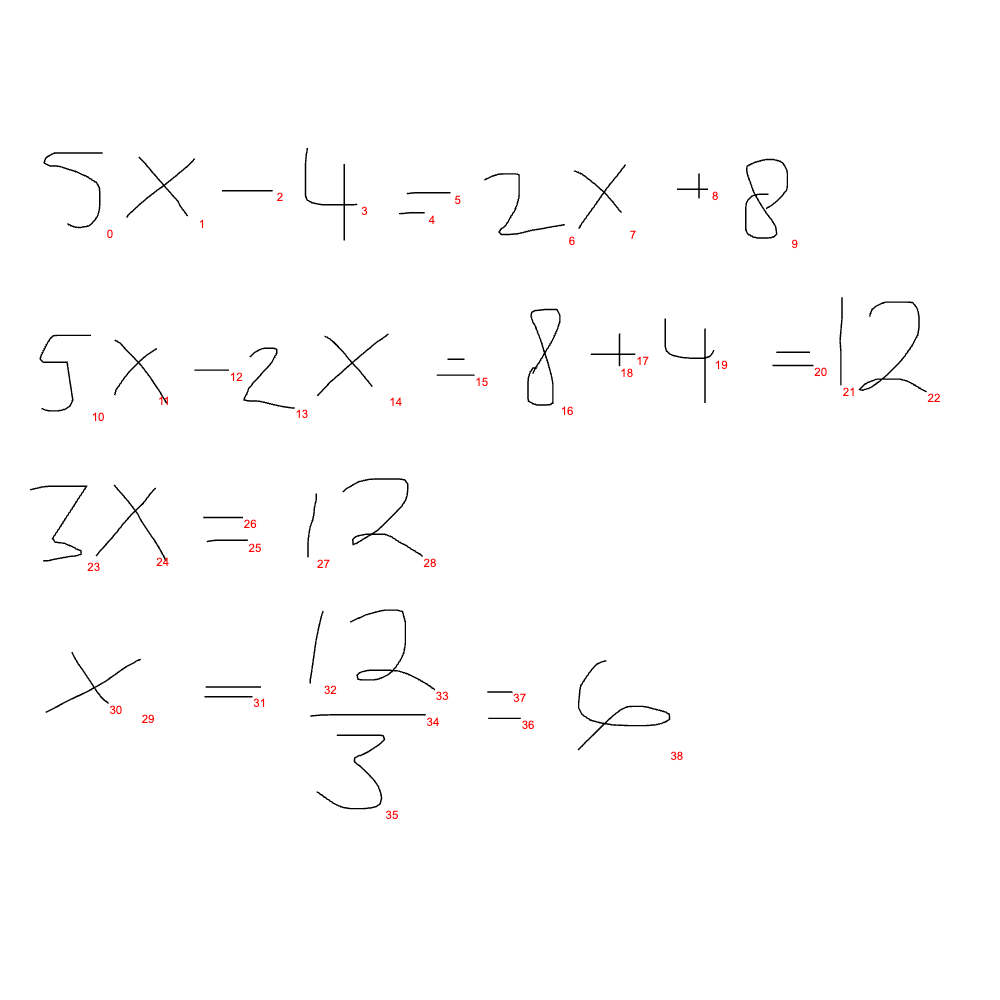 5x - 4 = 2x + 8
0 1 2 3 4 5 6 7 8 9
5x - 2x = 8 + 4 = 12
10 11 12 13 14 15 16 17 18 19 20 21 22
3x = 12
23 24 25 26 27 28
x = 12/3 = 6
29 30 31 32 33 34 35 36 37 38